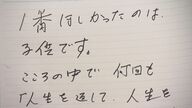 1番ほしかったのは、
子供です。
こころの中で何回も
「人生を返して、人生を